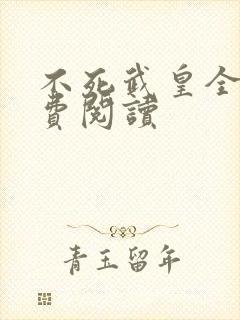 不死武皇全
費閱讀
青玉留年